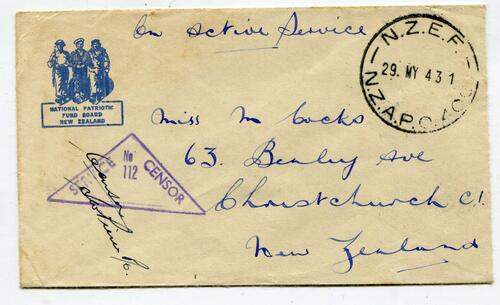 On Active Service
N.Z.E.F.
29. MY 43 1
N.Z.A.P.O. 400
NATIONAL PATRIOTIC
FUND BOARD
NEW ZEALAND
Miss M Cocks
63. Ave
Christchurch C1.
New Zealand
No
112
CENSOR